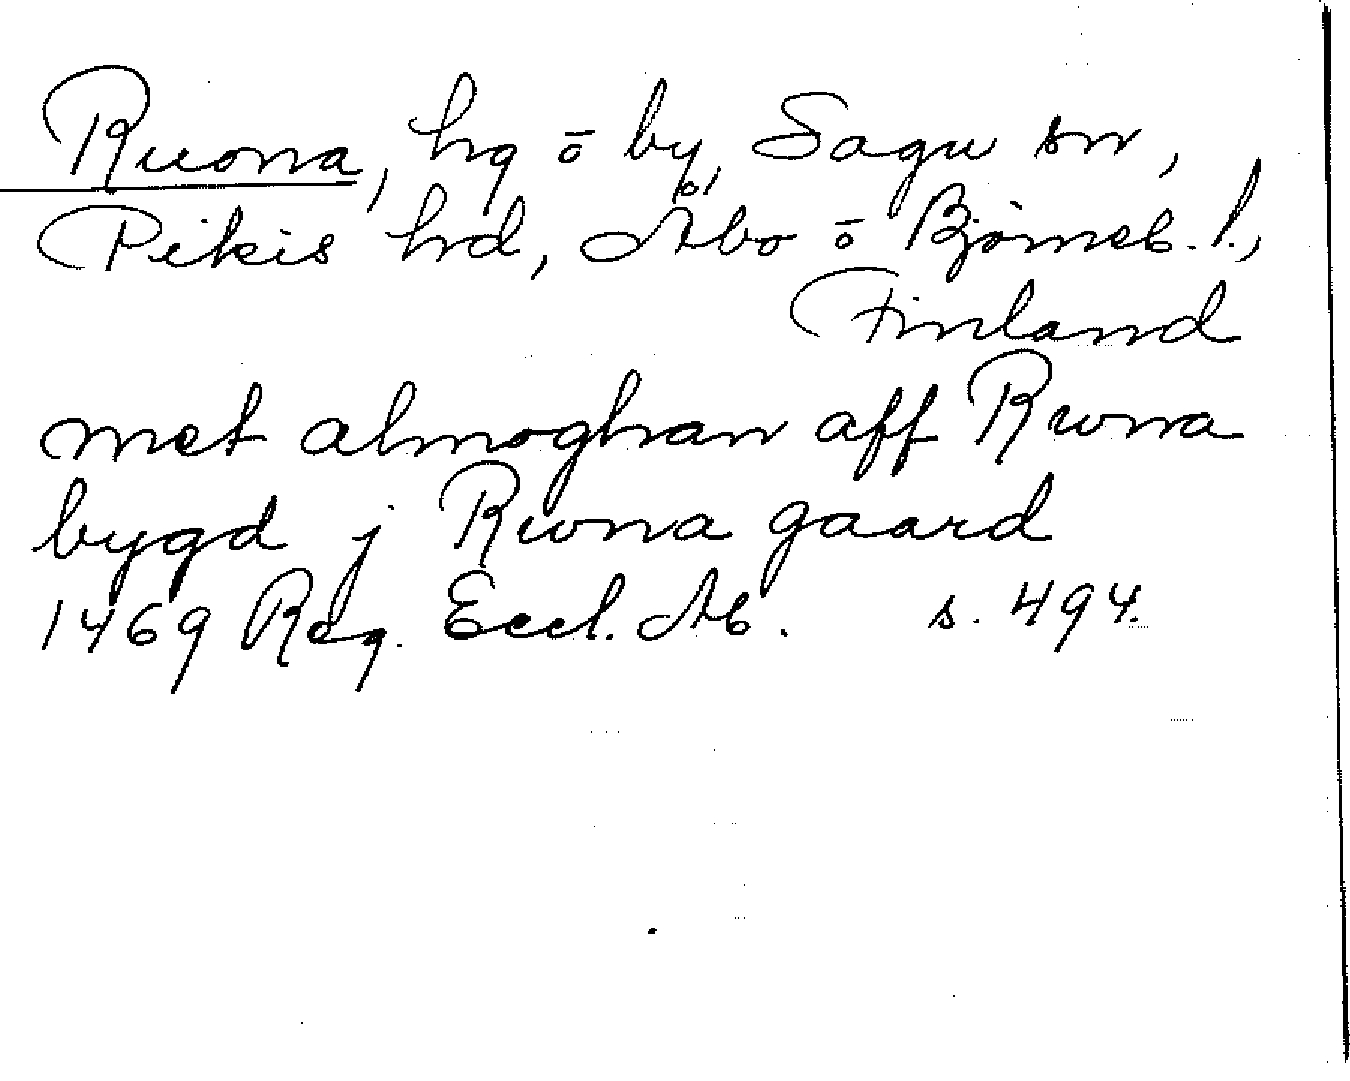 Ruona, hg ō by, Sagu sn,
Pikis hd, Åbo ō Björneb. l.,
Finland
met almoghan aff Rwna
bygd j Rwna gaard
1469 Reg. Eccl. Ab. s. 494.